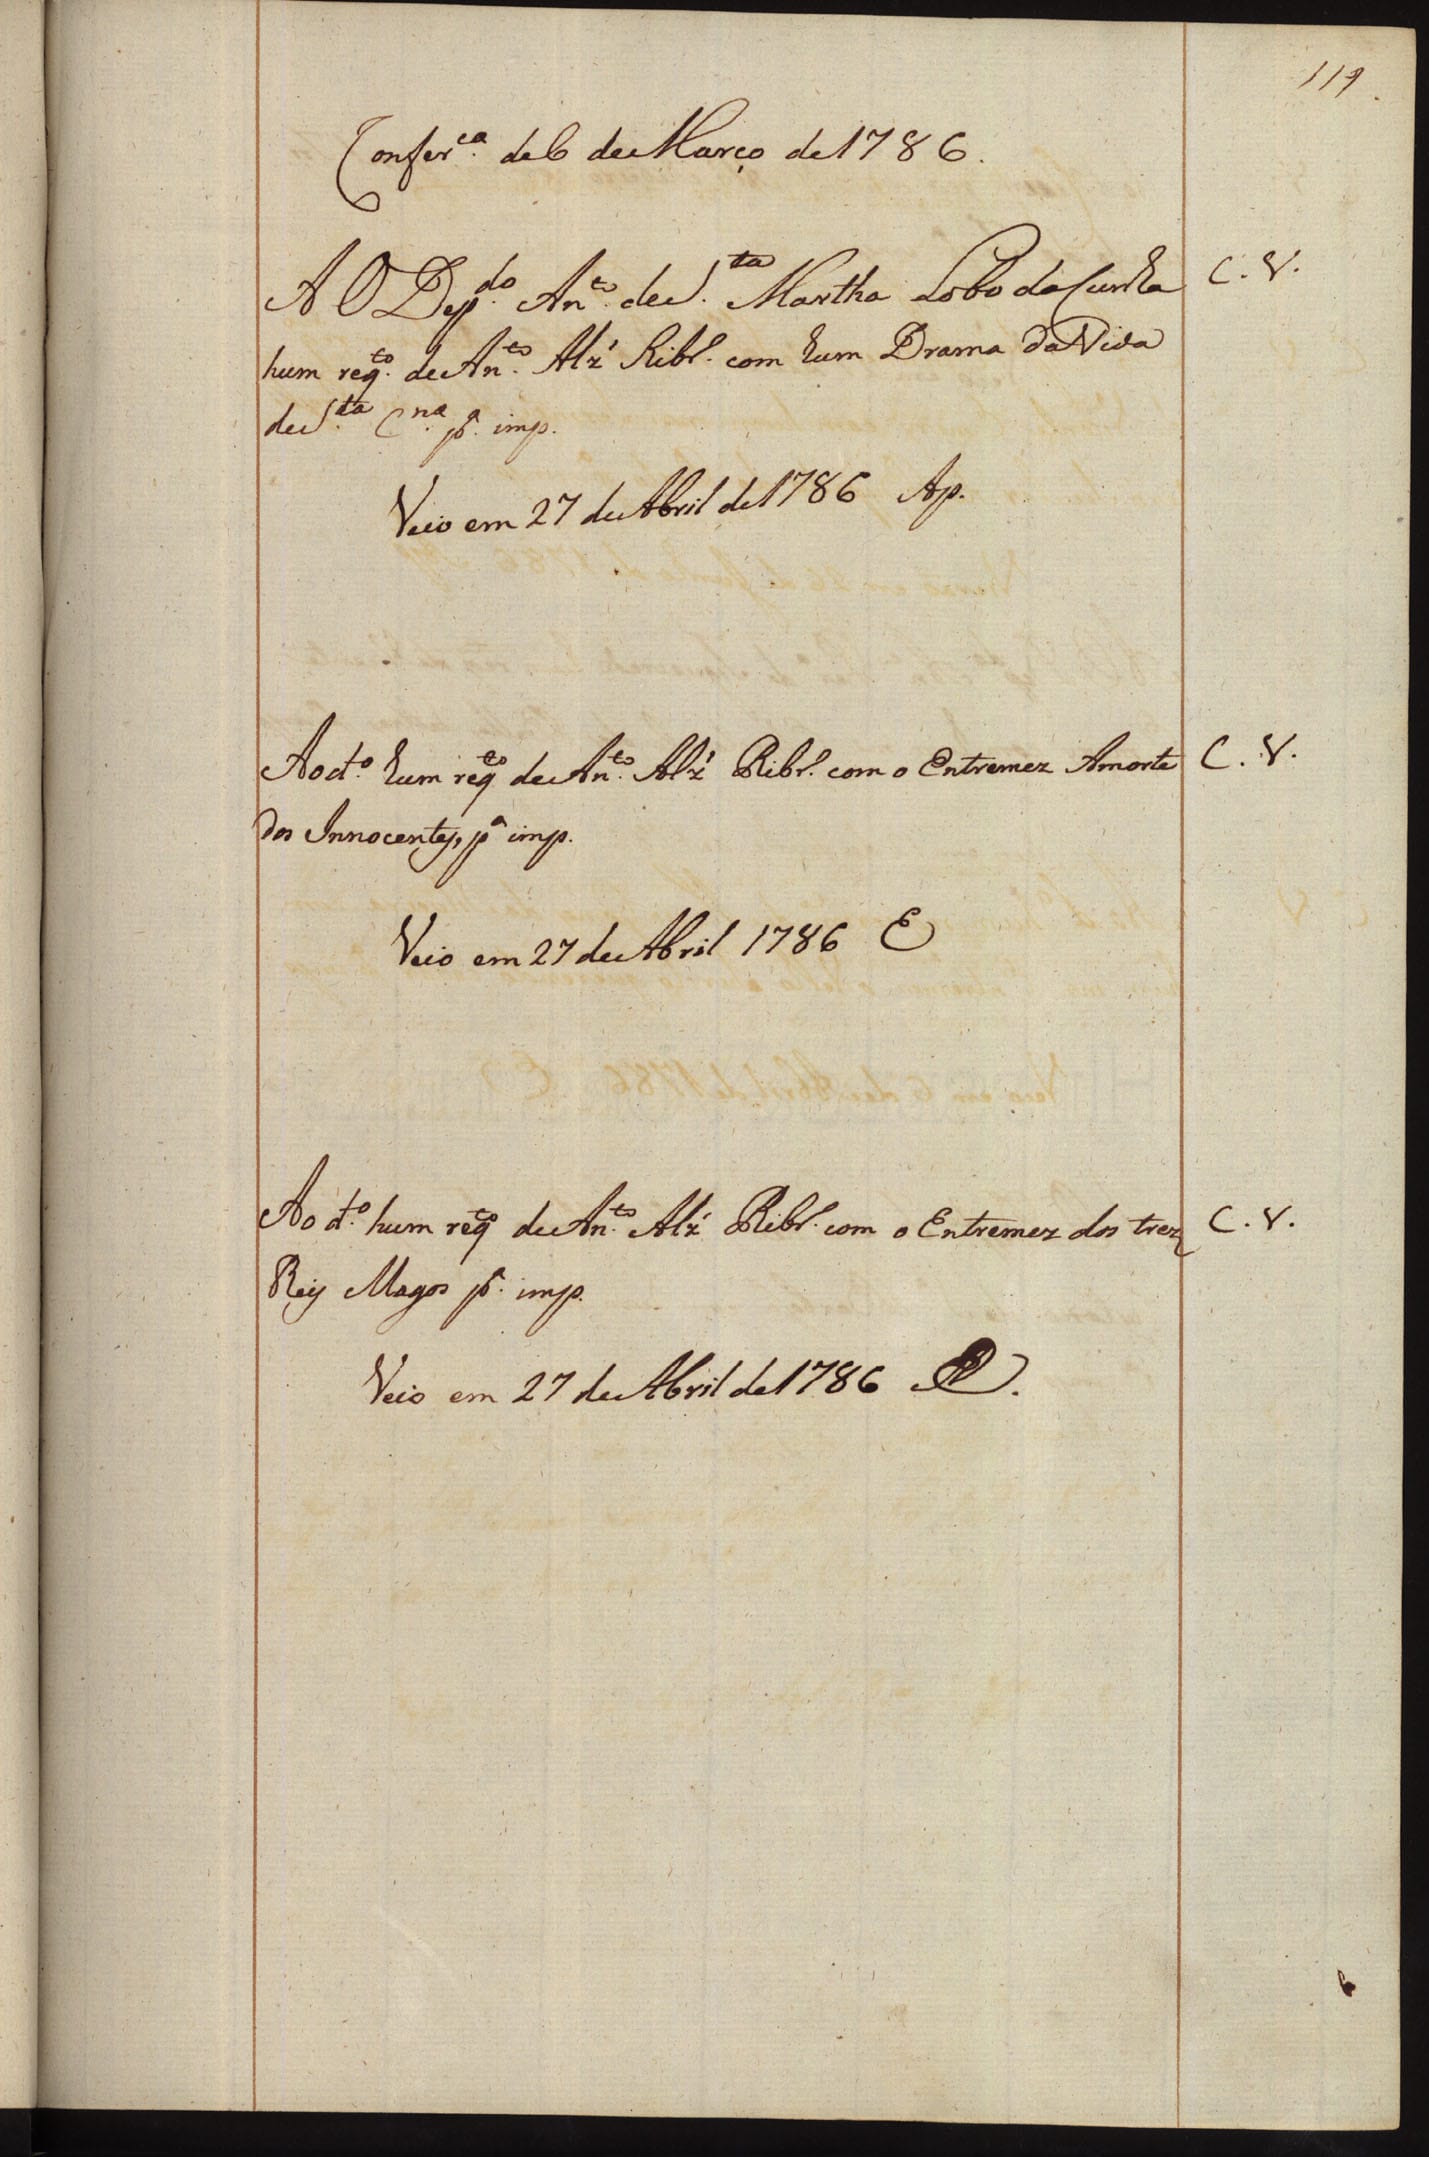 119
Confer.ca de 6 de Março de 1786.
AO Dep.do An.to de S.ta Martha Lobo da Cunha C. V.
hum req.to de An.to Alz' Ribr.o com hum Drama da Vida
de S.ta C.na p.a imp.
Veio em 27 de Abril de 1786 Ap.
Ao d.o hum req.to de An.to Alz' Ribr.o com o Entremez Amorte C. V.
dos Innocentes, p.a imp.
Veio em 27 de Abril 1786 E
Ao d.o hum req.to de An.to Alz' Ribr.o com o Entremez dos trez C. V.
Reis Magos p.a imp.
Veio em 27 de Abril de 1786